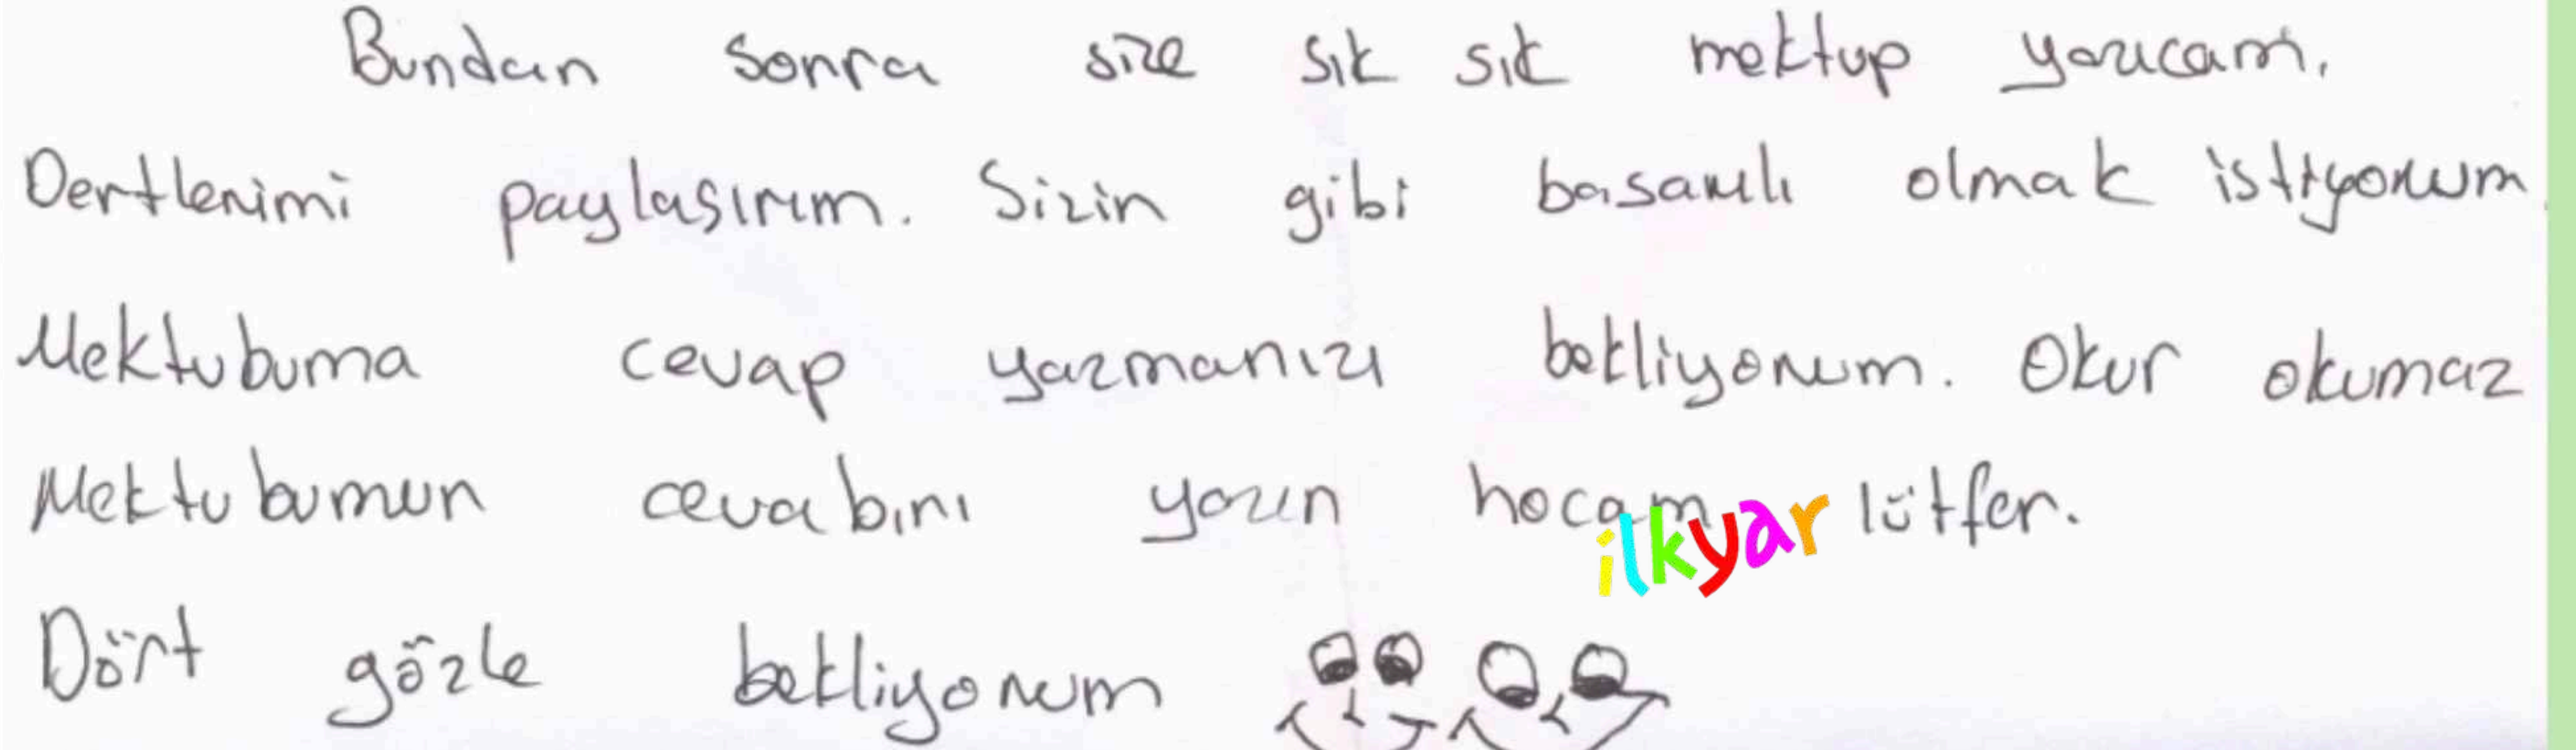 Bundan sonra size sık sık mektup yazıcam.
Dertlerimi paylaşırım. Sizin gibi başarılı olmak istiyorum.
Mektubuma cevap yazmanızı bekliyorum. Okur okumaz
Mektubumun cevabını yazın hocam lütfen.
ilkyar
Dört gözle bekliyorum